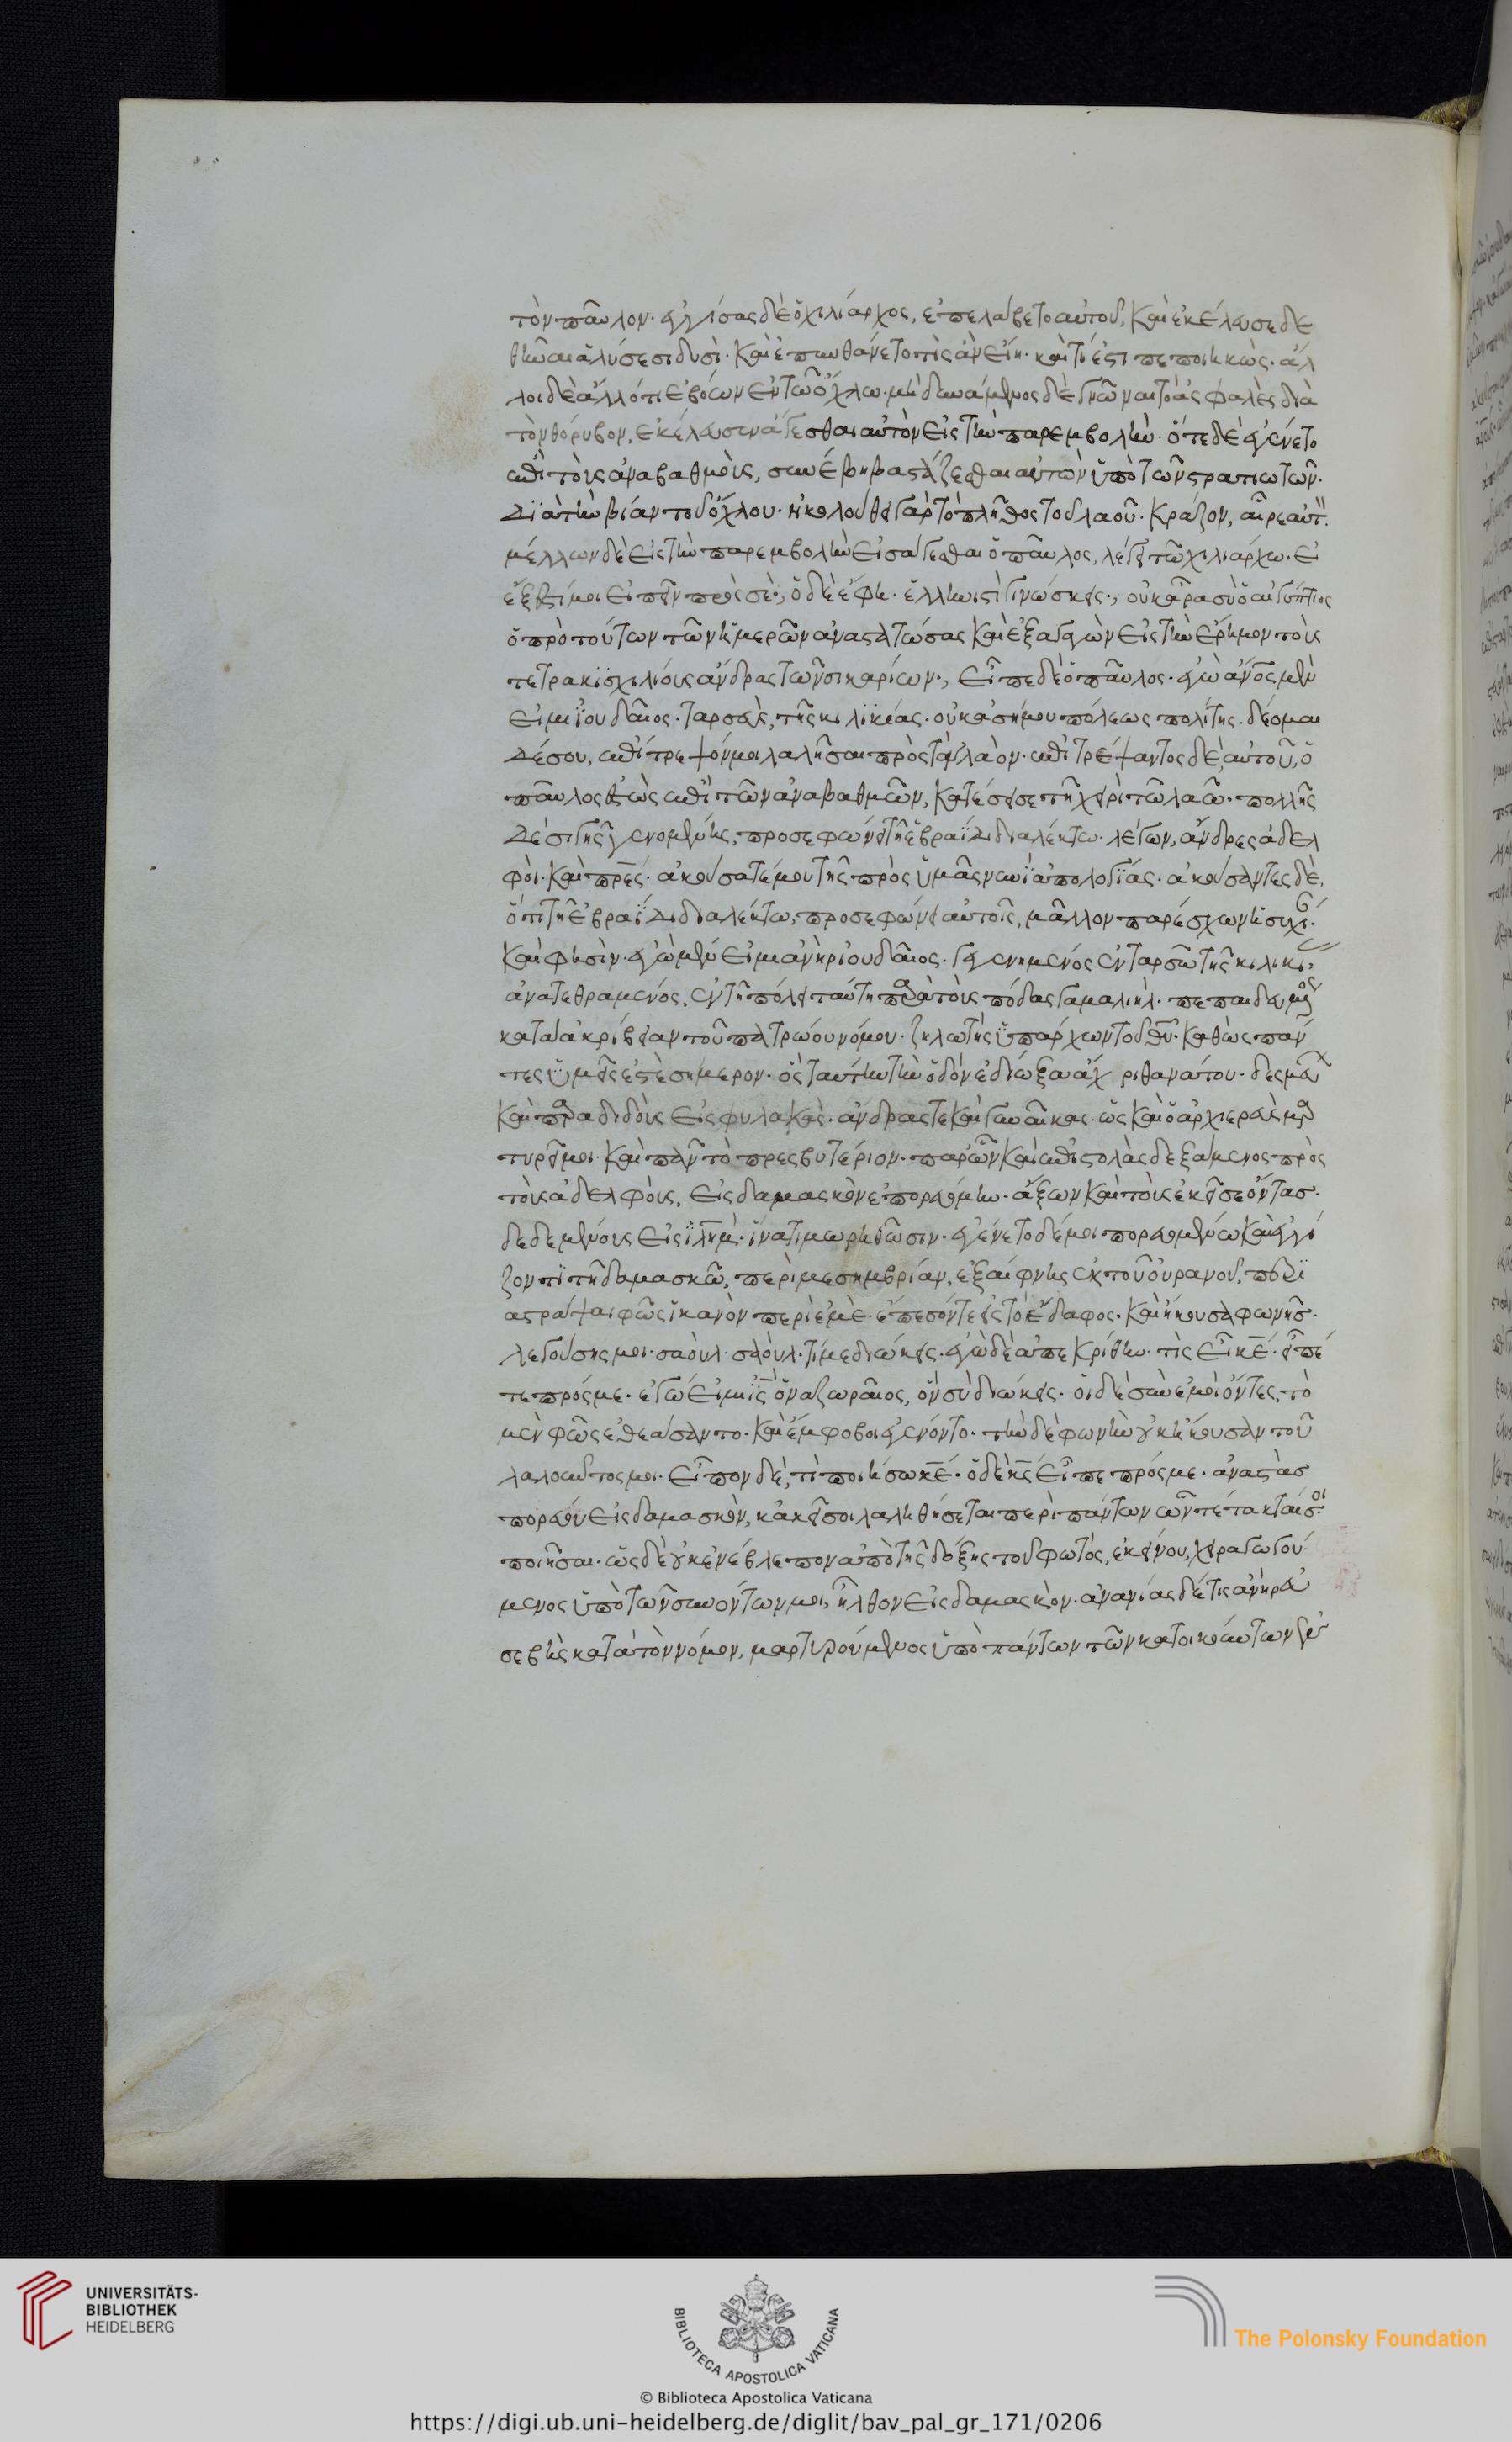 τὸν παῦλον· ἐγγίσας δὲ ὁ χιλίαρχος, ἐπελάβετο αὐτοῦ, καὶ ἐκέλευσε δε
θῆναι ἁλύσεσι δυσὶ· καὶ ἐπυνθάνετο τὶς ἂν εἴη· καὶ τί ἐστι πεποιηκὼς· ἄλ
λοι δὲ ἄλλό τι ἐβόων ἐν τῶ ὄχλω· μὴ δυνάμενος δὲ γνῶναι τὸ ἀσφαλὲς διὰ
τὸν θόρυβον, ἐκέλευσεν ἄγεσθαι αὐτὸν εἰς τὴν παρεμβολήν· ὅτε δὲ ἐγένετο
ἐπὶ τοὺς ἀναβαθμοὺς, συνέβη βαστάζεσθαι αὐτὸν ὑπὸ τῶν στρατιωτῶν·
διὰ τὴν βίαν τοῦ ὄχλου· ἠκολούθει γὰρ τὸ πλῆθος τοῦ λαοῦ· κράζον, αἶρε αὐτ·
μέλλων δὲ εἰς τὴν παρεμβολὴν εἰσάγεσθαι ὁ παῦλος, λέγει τῶ χιλιάρχω· εἰ
ἔξεστί μοι εἰπεῖν πρὸς σὲ·, ὁ δὲ ἔφη· ἑλληνιστὶ γινώσκεις·, οὐκ ἄρα σὺ ὁ αἰγύπτιος
ὁ πρὸ τούτων τῶν ἡμερῶν ἀναστατώσας καὶ ἐξαγαγὼν εἰς τὴν ἔρημον τοὺς
τετρακισχιλίους ἄνδρας τῶν σικαρίων·, εἶπε δὲ ὁ παῦλος· ἐγὼ ἄνος μὲν
εἰμι ἰουδαῖος· ταρσεὺς, τῆς κιλικίας· οὐκ ἀσήμου πόλεως πολίτης. δέομαι
δέ σου, ἐπίτρεψόν μοι λαλῆσαι πρὸς τὸν λαὸν· ἐπιτρέψαντος δὲ αὐτοῦ, ὁ
παῦλος ἑστὼς ἐπὶ τῶν ἀναβαθμῶν, κατέσεισε τῆ χειρὶ τῶ λαῶ· πολλῆς
δὲ σιγῆς γενομένης, προσεφώνει τῆ ἑβραΐδι διαλέκτω· λέγων, ἄνδρες ἀδελ
φοὶ· καὶ πρες· ἀκούσατέ μου τῆς πρὸς ὑμᾶς νυνὶ ἀπολογίας· ἀκούσαντες δὲ,
ὅτι τῆ ἑβραΐδι διαλέκτω, προσεφώνει αὐτοῖς, μᾶλλον παρέσχων ἡσυχί·
καὶ φησὶν· ἐγὼ μὲν εἰμι ἀνὴρ ἰουδαῖος· γεγενημένος ἐν ταρσῶ τῆς κιλικί
ἀνατεθραμένος, ἐν τῆ πόλει ταύτη παρὰ τοὺς πόδας γαμαλιὴλ· πεπαιδευμ
κατὰ ἀκρίβειαν τοῦ πατρώου νόμου· ζηλωτὴς ὑπάρχων τοῦ θυ· καθὼς πάν
τες ὑμεῖς ἐστὲ σήμερον· ὃς ταύτην τὴν ὁδὸν ἐδίωξα ἄχ ρι θανάτου· δεσμεύ
καὶ παραδιδοὺς εἰς φυλακὰς· ἄνδρας τε καὶ γυναῖκας· ὡς καὶ ὁ ἀρχιερεὺς μαρ
τυρεῖ μοι· καὶ πᾶν τὸ πρεσβυτέριον· παρ' ὧν καὶ ἐπιστολὰς δεξάμενος πρὸς
τοὺς ἀδελφοὺς, εἰς δαμασκὸν ἐπορευόμην· ἄξων καὶ τοὺς ἐκεῖσε ὄντας·
δεδεμένους εἰς ιλημ· ἵνα τιμωρηθῶσιν· ἐγένετο δέ μοι πορευομένω καὶ ἐγγί
ζοντι τῆ δαμασκῶ, περὶ μεσημβρίαν, ἐξαίφνης ἐκ τοῦ οὐρανοῦ, περι
αστράψαι φῶς ἱκανὸν περὶ ἐμὲ· ἔπεσόν τε εἰς τὸ ἔδαφος· καὶ ἤκουσα φωνῆς·
λεγούσης μοι· σαοὺλ· σαοὺλ· τί με διώκεις· ἐγὼ δὲ ἀπεκρίθην· τὶς εἶ κε· εἶπέ
τε πρός με· ἐγώ εἰμι ις ὁ ναζωραῖος, ὃν σὺ διώκεις· οἱ δὲ σὺν ἐμοὶ ὄντες, τὸ
μὲν φῶς ἐθεάσαντο· καὶ ἔμφοβοι ἐγένοντο· τὴν δὲ φωνὴν οὐκ ἤκουσαν τοῦ
λαλοῦντος μοι· εἶπον δὲ, τὶ ποιήσω κε· ὁ δὲ κς εἶπε πρός με· ἀναστὰς
πορεύου εἰς δαμασκὸν, κἀκεῖ σοι λαληθήσεται περὶ πάντων ὧν τέτακταί σοι
ποιῆσαι· ὡς δὲ οὐκ ἐνέβλεπον ἀπὸ τῆς δόξης τοῦ φωτός, ἐκείνου, χειραγωγού
μενος ὑπὸ τῶν συνόντων μοι, ἦλθον εἰς δαμασκὸν· ἀνανίας δέ τις ἀνὴρ εὐ
σεβὴς κατὰ τὸν νόμον, μαρτυρούμενος ὑπὸ πάντων τῶν κατοικούντων
UNIVERSITÄTS-
BIBLIOTHEK
HEIDELBERG
BIBLIOTECA APOSTOLICA VATICANA
© Biblioteca Apostolica Vaticana
The Polonsky Foundation
https://digi.ub.uni-heidelberg.de/diglit/bav_pal_gr_171/0206